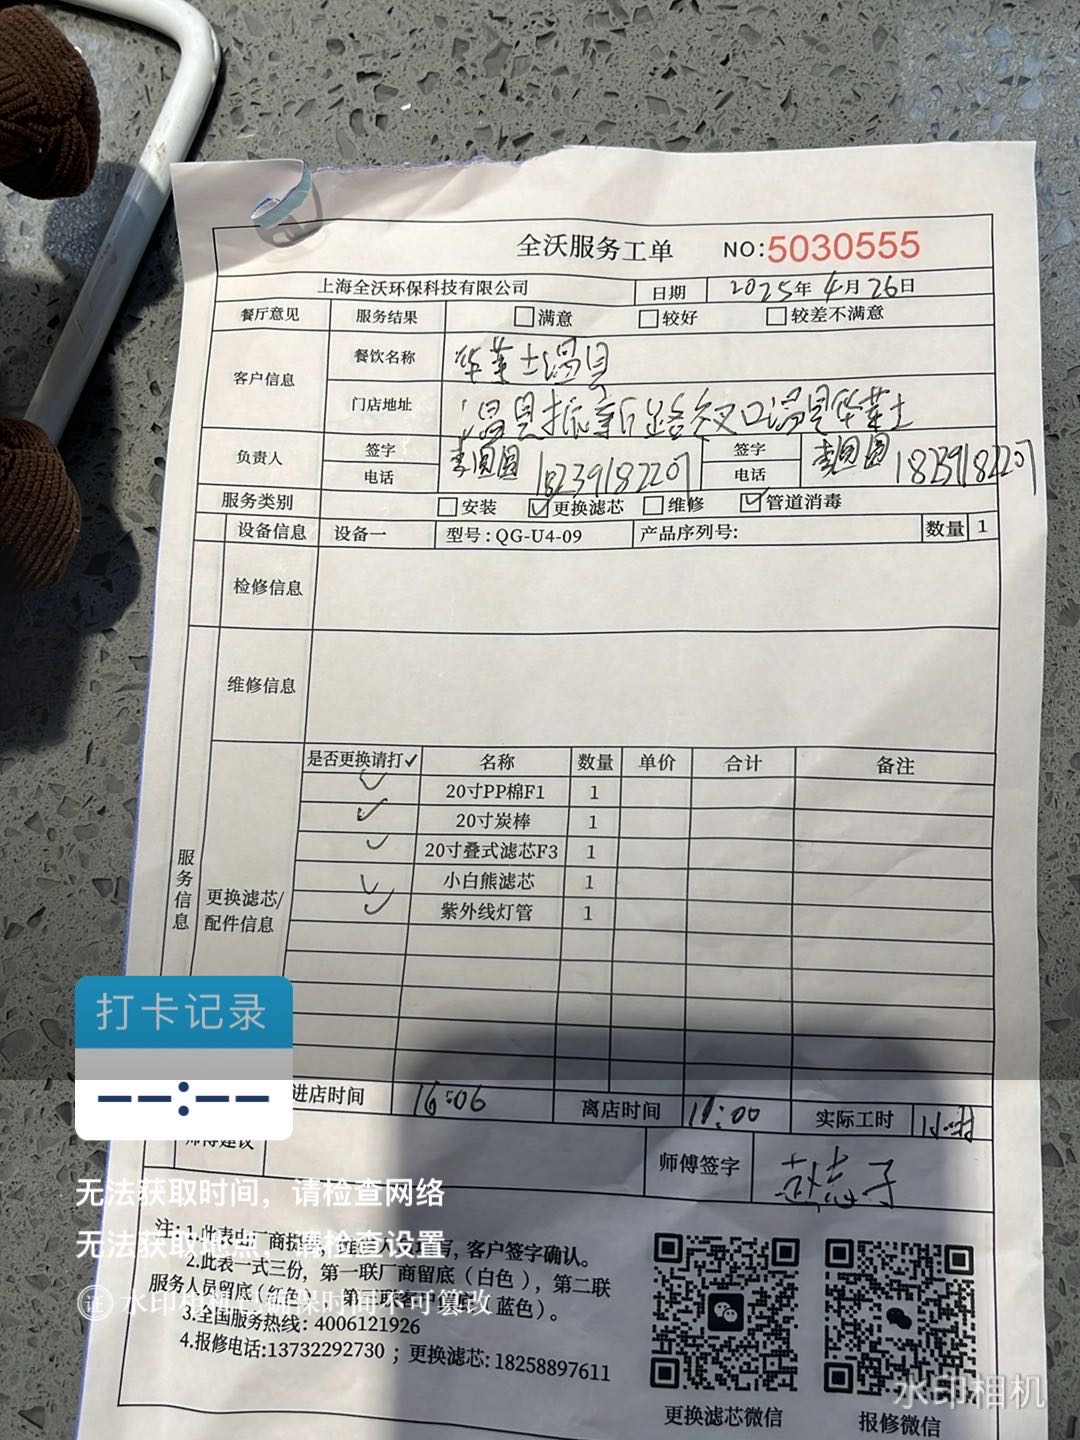 全沃服务工单 NO:5030555
上海全沃环保科技有限公司 日期 2025年4月26日
餐厅意见 服务结果 满意 较好 较差不满意
客户信息 餐饮名称 华莱士温县
门店地址 温县振新路交叉口温县华莱士
负责人 签字 李圆圆 签字 李圆圆
电话 18239182207 电话 18239182207
服务类别 安装 ✓更换滤芯 维修 ✓管道消毒
设备信息 设备一 型号:QG-U4-09 产品序列号: 数量 1
检修信息
维修信息
服务信息
更换滤芯/
配件信息
是否更换请打✓ 名称 数量 单价 合计 备注
✓ 20寸PP棉F1 1
✓ 20寸炭棒 1
✓ 20寸叠式滤芯F3 1
✓ 小白熊滤芯 1
✓ 紫外线灯管 1
打卡记录
--:--
进店时间 16:06 离店时间 17:00 实际工时 1小时
师傅建议 师傅签字
无法获取时间，请检查网络
无法获取地点，请检查设置
注: 1.此表由厂商提 客户签字确认。
2.此表一式三份，第一联厂商留底（白色），第二联
服务人员留底（红色） 蓝色）。
水印相机已确保时间不可篡改
3.全国服务热线: 4006121926
4.报修电话:13732292730；更换滤芯: 18258897611
更换滤芯微信 报修微信
水印相机